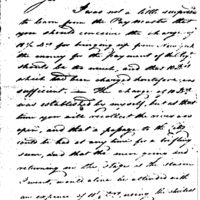 I was not a little surprised
to learn from the Pay Master that
you should conceive the charge of
for bringing up from New York
the money for the payment of the
should be so much, and that
which had been charged heretofore, was
sufficient. — The charge of
was established by myself, but at that
time you will recollect the rivers were
open, and that a passage to the City
could be had at any time for a trifling
sum, and that the mere going and
returning in the stage at the season
I went, would alone be attended with
an expence of using the strictest